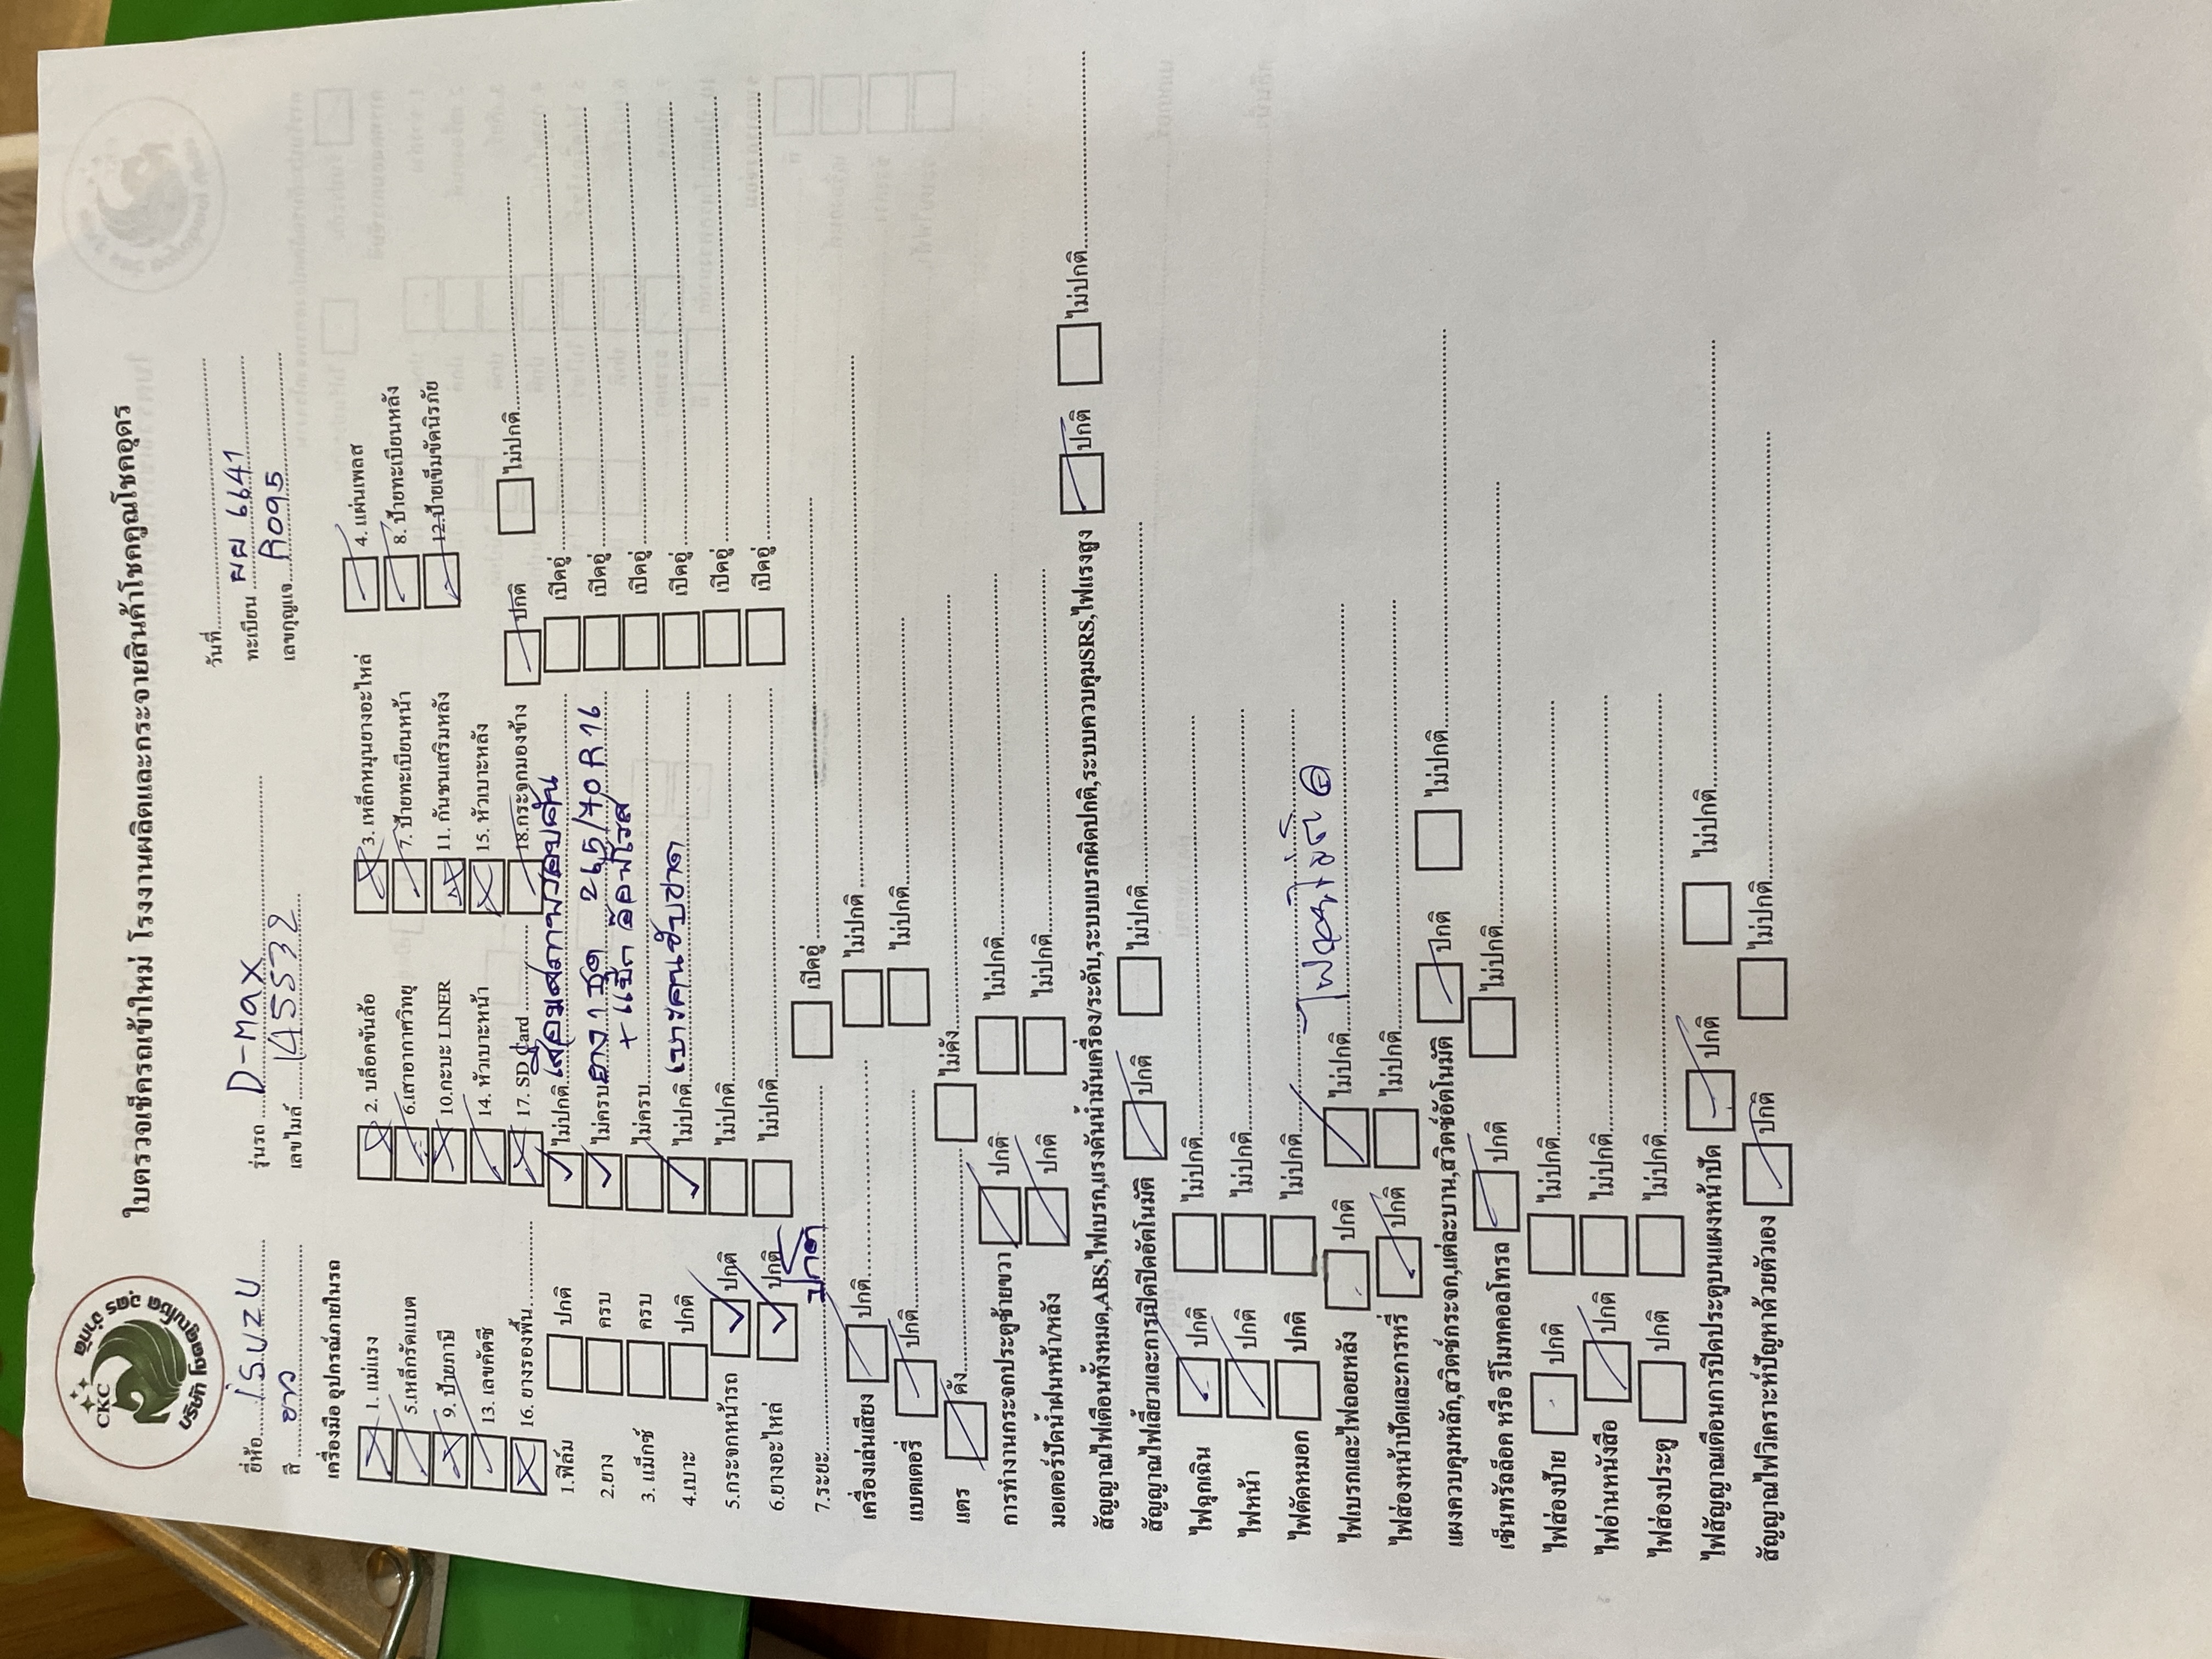 CKC
บริษัท โชคคูณโชค อุดร จำกัด
ใบตรวจเช็ครถเข้าใหม่ โรงงานผลิตและกระจายสินค้าโชคคูณโชคอุดร
วันที่
ยี่ห้อ ISUZU รุ่นรถ D-MAX ทะเบียน ผผ 6641
สี ขาว เลขไมล์ 145532 เลขกุญแจ R095
เครื่องมือ อุปกรณ์ภายในรถ
1. แม่แรง 2. บล็อคขันล้อ 3. เหล็กหมุนยางอะไหล่ 4. แผ่นเพลส
5.เหล็กรัดแบต 6.เสาอากาศวิทยุ 7. ป้ายทะเบียนหน้า 8. ป้ายทะเบียนหลัง
9. ป้ายภาษี 10.กะบะ LINER 11. กันชนเสริมหลัง 12.ป้ายเข็มขัดนิรภัย
13. เลขคัดซี 14. หัวเบาะหน้า 15. หัวเบาะหลัง
16. ยางรองพื้น 17. SD Card 18.กระจกมองข้าง ปกติ ไม่ปกติ
1.ฟิล์ม ปกติ ไม่ปกติ เสื่อมสภาพรอบคัน เปิดอู่
2.ยาง ครบ ไม่ครบ ยาง 1 ชุด 265/70 R16 เปิดอู่
3. แม็กซ์ ครบ ไม่ครบ + แม็ก เปิดอู่
4.เบาะ ปกติ ไม่ปกติ เบาะคนขับขาด เปิดอู่
5.กระจกหน้ารถ ปกติ ไม่ปกติ เปิดอู่
6.ยางอะไหล่ ปกติ ไม่ปกติ เปิดอู่
7.ระยะ ปกติ เปิดอู่
เครื่องเล่นเสียง ปกติ ไม่ปกติ
แบตเตอรี่ ปกติ ไม่ปกติ
แตร ดัง ไม่ดัง
การทำงานกระจกประตูซ้ายขวา ปกติ ไม่ปกติ
มอเตอร์ปัดน้ำฝนหน้า/หลัง ปกติ ไม่ปกติ
สัญญาณไฟเตือนทั้งหมด,ABS,ไฟเบรก,แรงดันน้ำมันเครื่อง/ระดับ,ระบบเบรกผิดปกติ,ระบบควบคุมSRS,ไฟแรงสูง ปกติ ไม่ปกติ
สัญญาณไฟเลี้ยวและการเปิดปิดอัตโนมัติ ปกติ ไม่ปกติ
ไฟฉุกเฉิน ปกติ ไม่ปกติ
ไฟหน้า ปกติ ไม่ปกติ
ไฟตัดหมอก ปกติ ไม่ปกติ
ไฟเบรกและไฟถอยหลัง ปกติ ไม่ปกติ
ไฟส่องหน้าปัดและการหรี่ ปกติ ไม่ปกติ
แผงควบคุมหลัก,สวิตช์กระจก,แต่ละบาน,สวิตช์อัตโนมัติ ปกติ ไม่ปกติ
เซ็นทรัลล็อค หรือ รีโมทคอลโทรล ปกติ ไม่ปกติ
ไฟส่องป้าย ปกติ ไม่ปกติ
ไฟอ่านหนังสือ ปกติ ไม่ปกติ
ไฟส่องประตู ปกติ ไม่ปกติ
ไฟสัญญาณเตือนการปิดประตูบนแผงหน้าปัด ปกติ ไม่ปกติ
สัญญาณไฟวิเคราะห์ปัญหาด้วยตัวเอง ปกติ ไม่ปกติ